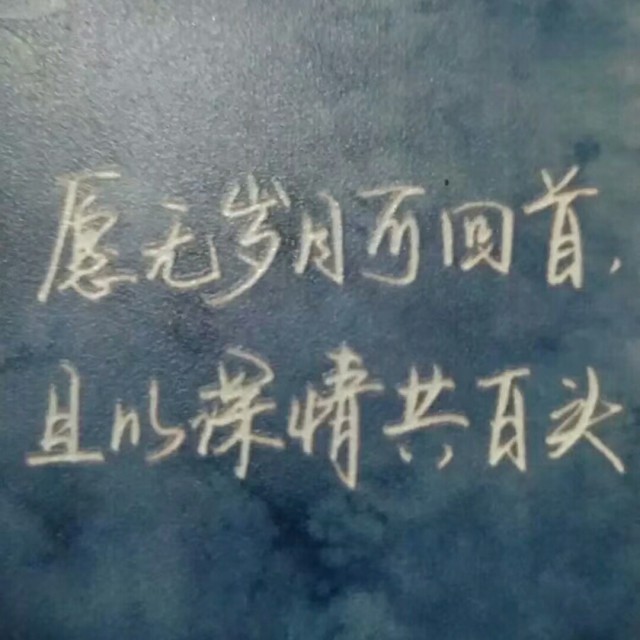 愿无岁月可回首,
且以深情共百头